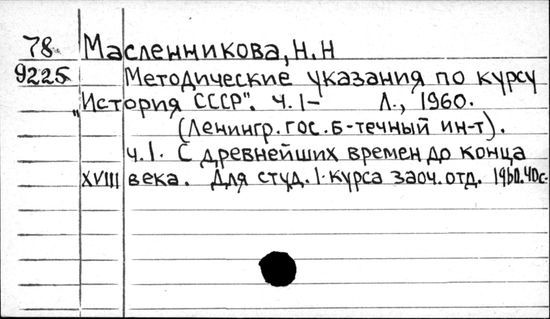 78 Масленникова, Н.Н
9225 Методические указания по курсу
"История СССР". Ч.1- Л., 1960.
(Ленингр. гос. б-течный ин-т).
ч.1. С древнейших времен до конца
XVIII века. Для студ. 1-курса заоч. отд. 1960. 40с.